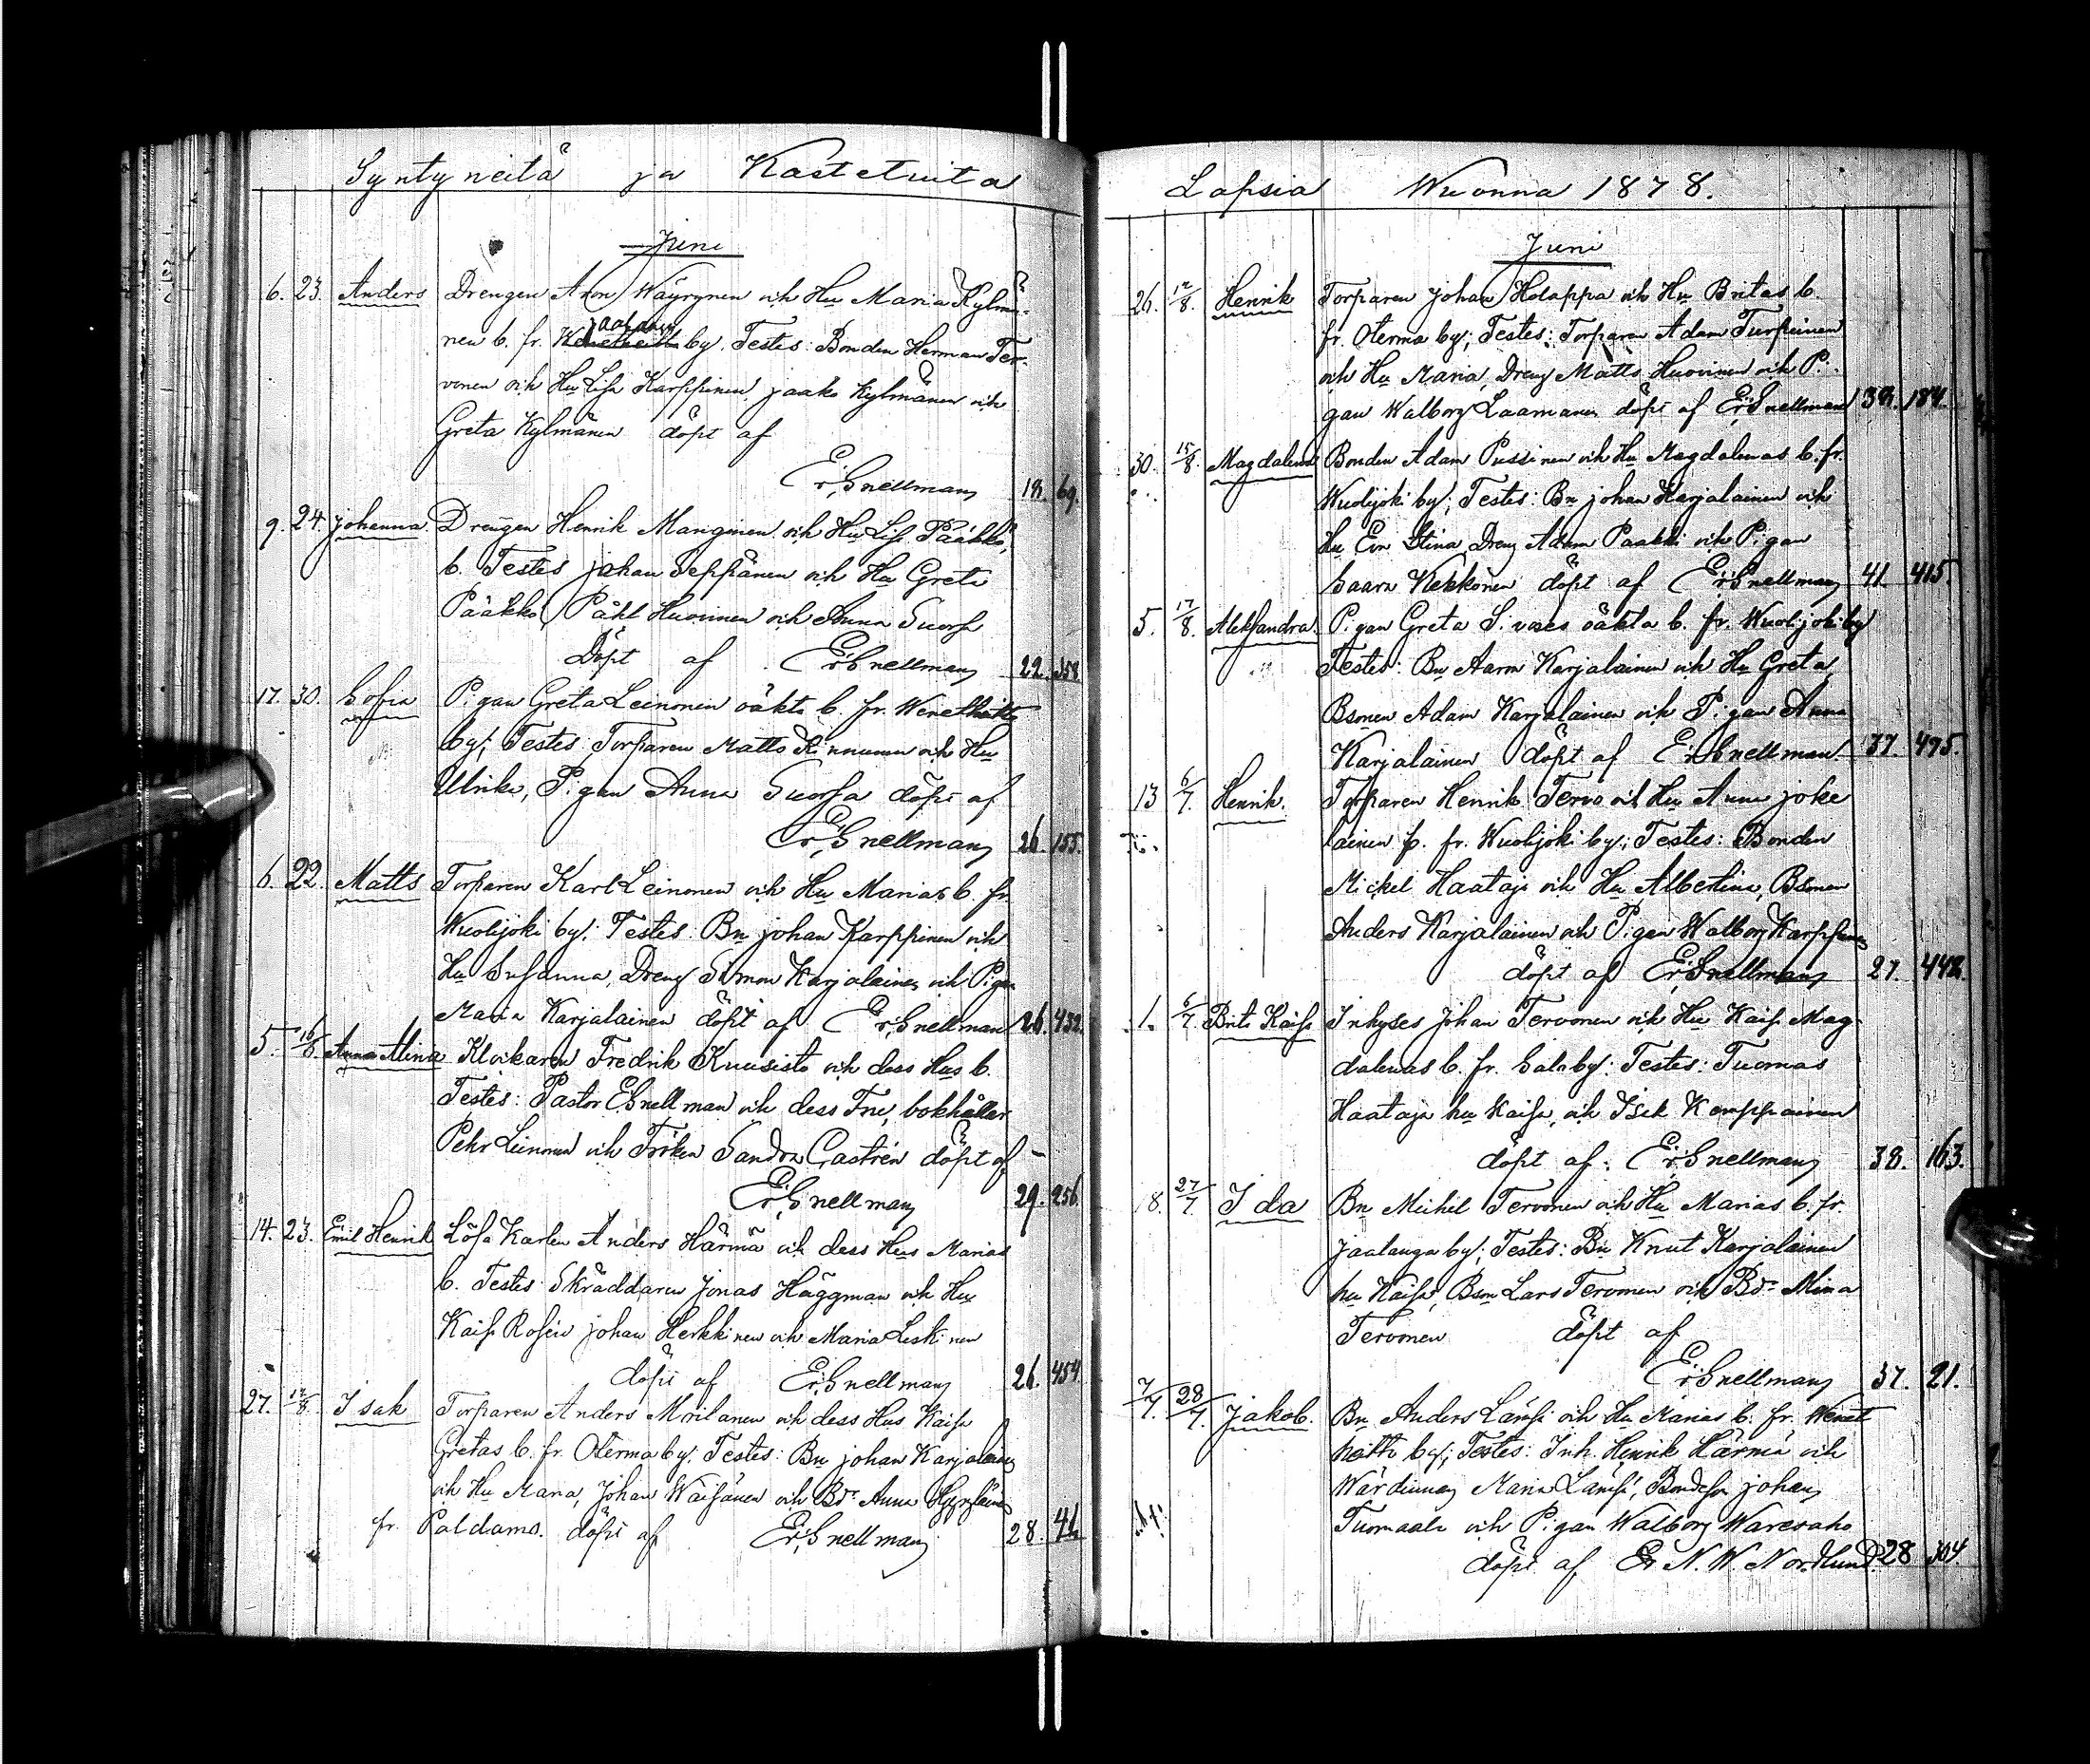 Syntyneitä ja Kastetuita
Juni
6. 23. Anders Drengen Aron Wäyrynen och Hu Maria Kylmä-
nen b. fr. by. Testes: Bonden Herman Ter-
vonen och Hu Lisa Karppinen, Jaako Kylmänen och
Greta Kylmänen döpt af
E: Snellman 18. 69.
9. 24. Johanna Drengen Henrik Manginen och Hu Lisa Pääkkö,
b. Testes Johan Seppänen och Hu Greta
Pääkkö, Påhl Huovinen och Anna Suorsa
Döpt af E: Snellman 22. 358
17. 30. Sofia Pigan Greta Leinonen oäkta b. fr. Weneheitto
by; Testes: Torparen Matts Kinnunen och Hu
Ulrika, Pigan Anna Suorsa döpt af
E: Snellman 26. 155.
6. 22. Matts Torparen Karl Leinonen och Hu Marias b. fr.
Wuolijoki by; Testes: Bn Johan Karppinen och
Hu Susanna, Dreng Simon Karjalainen och Pigan
Maria Karjalainen döpt af E: Snellman 26. 432.
5. 16/8 Anna Alina Klockaren Fredrik Kuusisto och dess Hus b.
Testes: Pastor E Snellman och dess Fru, bokhåller
Pehr Leinonen och Fröken Sandra Castrén döpt af
E: Snellman 29. 256
14. 23. Emil Henrik Lösa Karlen Anders Härmä och dess Hus Marias
b. Testes Skräddaren Jonas Häggman och Hu
Kaisa Rosén Johan Heikkinen och Maria Leskinen
döpt af E: Snellman 26. 454.
27. 12/8. Isak Torparen Anders Moilanen och dess Hus Kaisa
Gretas b. fr. Oterma by. Testes: Bn Johan Karjalainen
och Hu Maria, Johan Wäisänen och Bdr Anna
fr. Paldamo. döpt af E: Snellman 28. 41
Lapsia Wuonna 1878.
Juni
26. 12/8. Henrik Torparen Johan Holappa och Hu Britas b.
fr. Oterma by; Testes: Torparen Adam Turpeinen
och Hu Maria, Dreng Matts Huovinen och Pi-
gan Walborg Laamanen döpt af E: Snellman 38. 184.
30. 15/8. Magdalena Bonden Adam Pussinen och Hu Magdalenas b. fr.
Wuolijoki by; Testes: Bn Johan Karjalainen och
Hu Eva Stina, Dreng Adam Paakki och Pigan
Saara Kekkonen döpt af E: Snellman 41. 415.
5. 17/8. Aleksandra Pigan Greta S. vaes oäkta b. fr. Wuolijoki by
Testes: Bn Aaron Karjalainen och Hu Greta,
Bsonen Adam Karjalainen och Pigan Anna
Karjalainen döpt af E: Snellman. 37. 475.
13 6/7. Henrik. Torparen Henrik Tervo och Hu Anna Joke
lainen b. fr. Wuolijoki by; Testes: Bonden
Mickel Haataja och Hu Albertina, Bsonen
Anders Karjalainen och Pigan Walborg Karppinen
döpt af E: Snellman 27. 442.
1. 6/7 Brita Kaisa Inhyses Johan Tervonen och Hu Kaisa Mag-
dalenas b. fr. Salo by: Testes: Tuomas
Haataja hu Kaisa, och Isak Karppainen
döpt af: E: Snellman 38. 163.
18. 27/7 Ida Bn Michel Tervonen och Hu Marias b. fr.
Jaalanga by; Testes: Bn Knut Karjalainen
hu Kaisa, Bson Lars Tervonen och Bdr Mina
Tervonen döpt af
E: Snellman 37. 21.
7/7. 28/7. Jakob. Bn Anders Lämsä och Hu Marias b. fr. Wenet
heitto by; Testes: Inh. Henrik Härmä och
Wärdinnan Maria Lämsä, Bondeson Johan
Tuomaala och Pigan Walborg Waresaho
döpt af E: N. W. Nordlund. 28 304.